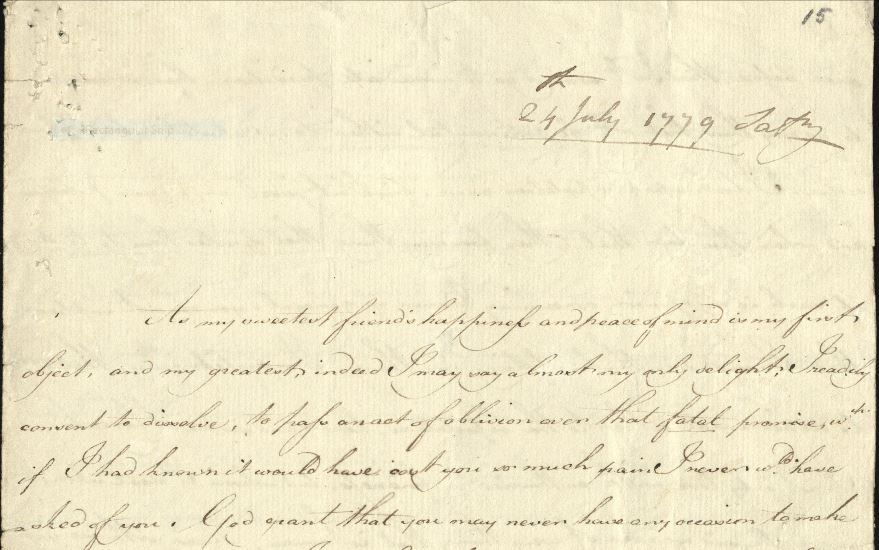 15
24th July 1779 Satry
As my sweetest friend's happiness and peace of mind is my first
object, and my greatest, indeed I may say almost my only delight; I readily
consent to dissolve, to pass an act of oblivion over that fatal promise, wch.
if I had known it would have cost you so much pain I never wd. have
asked of you. God grant that you may never have any occasion to make